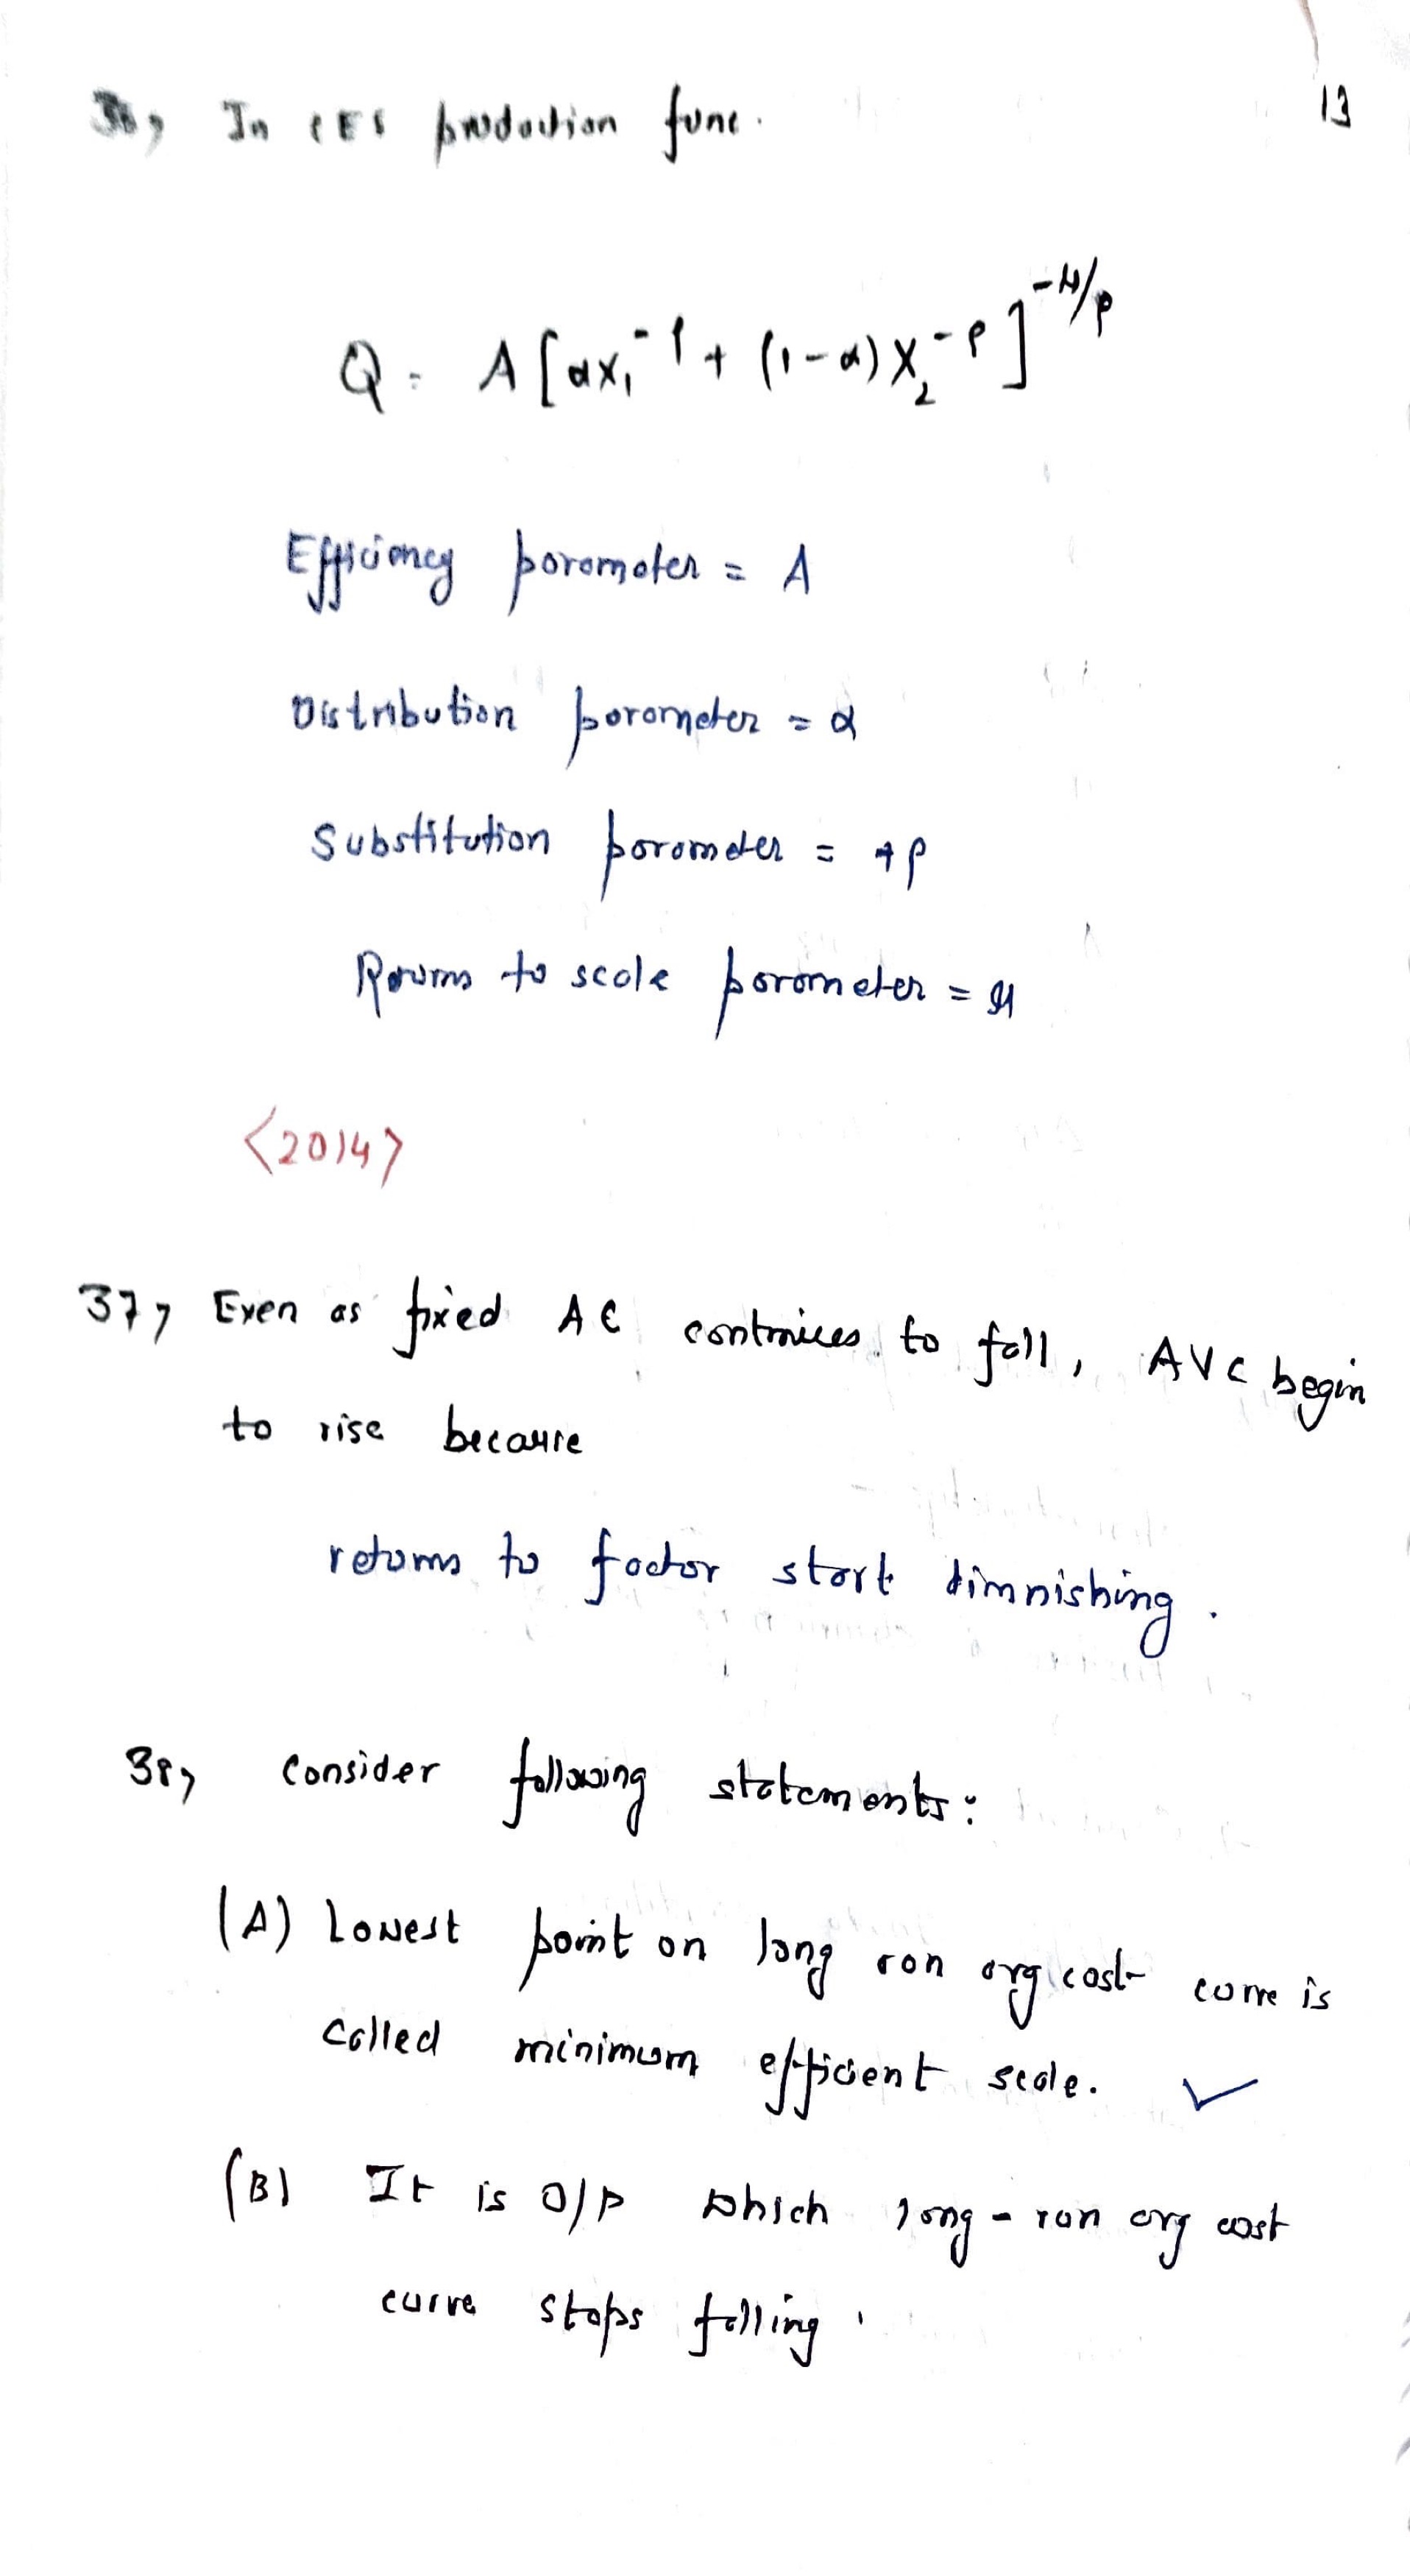 13
36, In CES production func.
Q = A [αx₁^-ρ + (1-α) x₂^-ρ ]^-μ/ρ
Efficiency parameter = A
Distribution parameter = α
Substitution parameter = ρ
Returns to scale parameter = μ
<2014>
37, Even as fixed AC continues to fall, AVC begin
to rise because
returns to factor start diminishing.
38, Consider following statements:
(A) Lowest point on long run avg cost curve is
called minimum efficient scale. ✓
(B) It is O/P which long-run avg cost
curve stops falling.